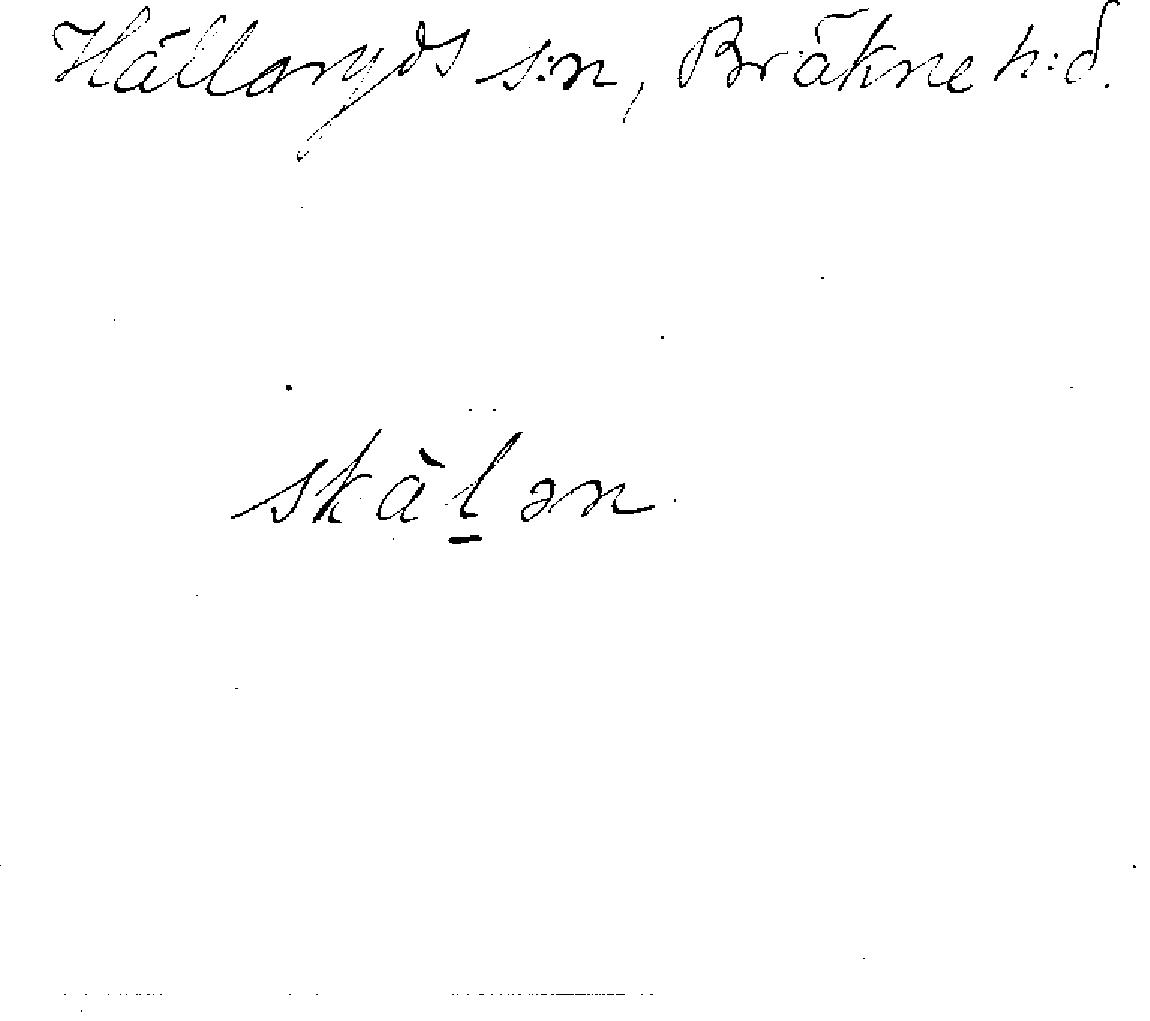 Hällaryds s:n, Bräkne h:d.
skàl̠ ən